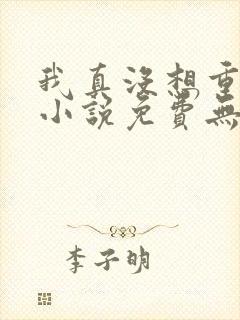 我真没想重
小说免費無
李子明